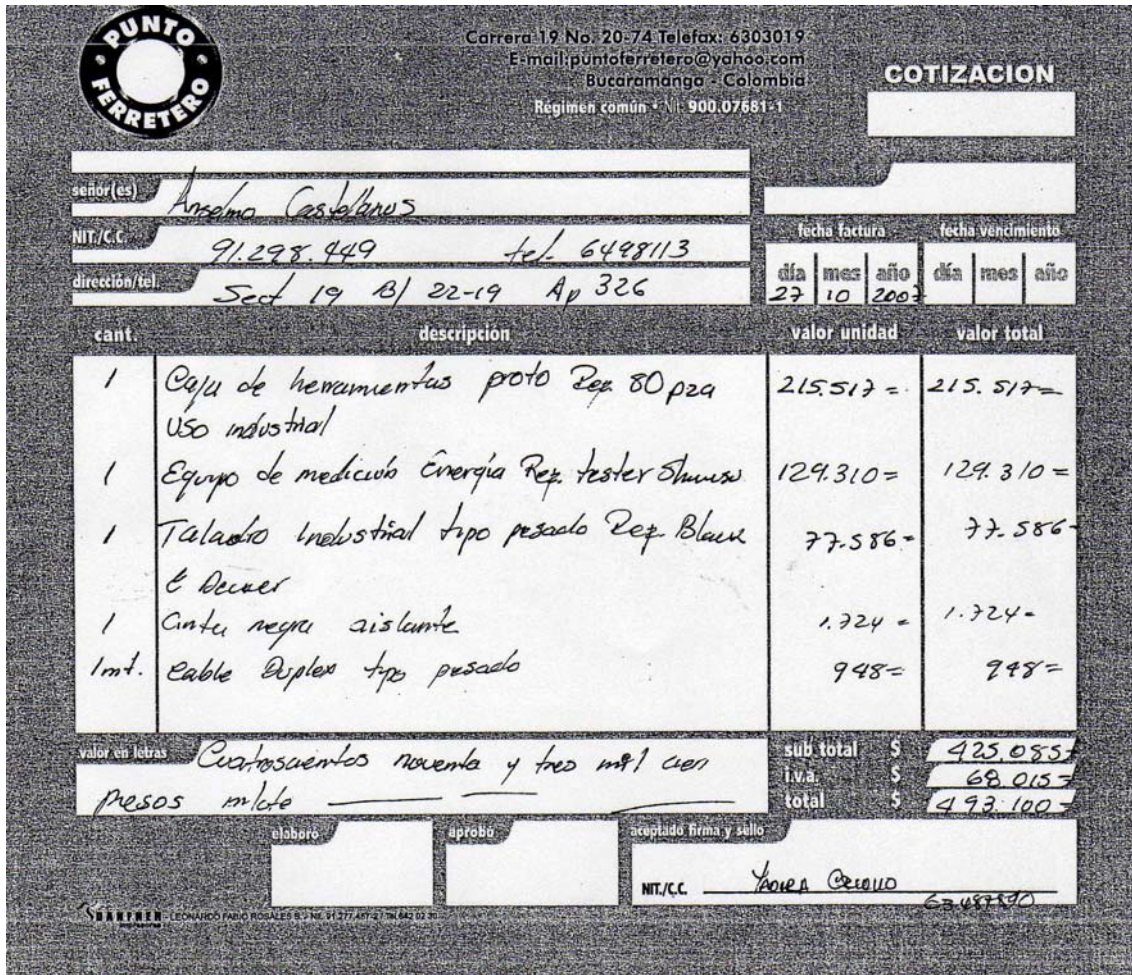 PUNTO FERRETERO
Carrera 19 No. 20-74 Telefax: 6303019
E-mail:puntoferretero@yahoo.com
Bucaramanga - Colombia
Régimen común • Nit 900.07681-1
COTIZACION
señor(es) Anselmo Castellanos
NIT./C.C. 91.298.449 tel. 6498113
dirección/tel. Sect 19 Bl 22-19 Ap 326
fecha factura fecha vencimiento
día mes año día mes año
27 10 2007
cant. descripción valor unidad valor total
1 Caja de herramientas proto Rez 80 pza 215.517= 215.517=
Uso industrial
1 Equipo de medición Energía Rez. tester 129.310= 129.310=
1 Taladro Industrial tipo pesado Rez. Black 77.586= 77.586=
& Decker
1 Cinta negra aislante 1.724= 1.724=
1mt. Cable Duplex tipo pesado 948= 948=
valor en letras Cuatroscientos noventa y tres mil cien
pesos m/cte
sub total $ 425.085=
i.v.a. $ 68.015=
total $ 493.100=
elaboró aprobó aceptado firma y sello
NIT./C.C.
LEONARDO FABIO ROSALES B. - Nit. 91.277.457-2 / Tel. 642 02 30